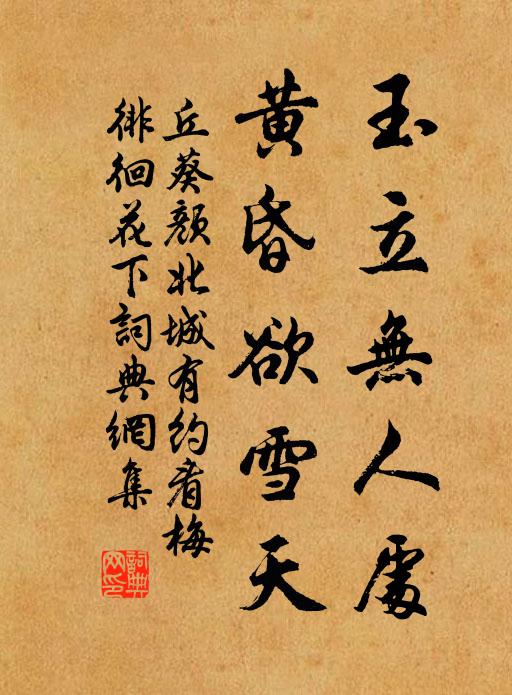 玉立無人處
黃昏欲雪天
丘葵顏北城有約看梅
徘徊花下詞典網集
詞典
网印